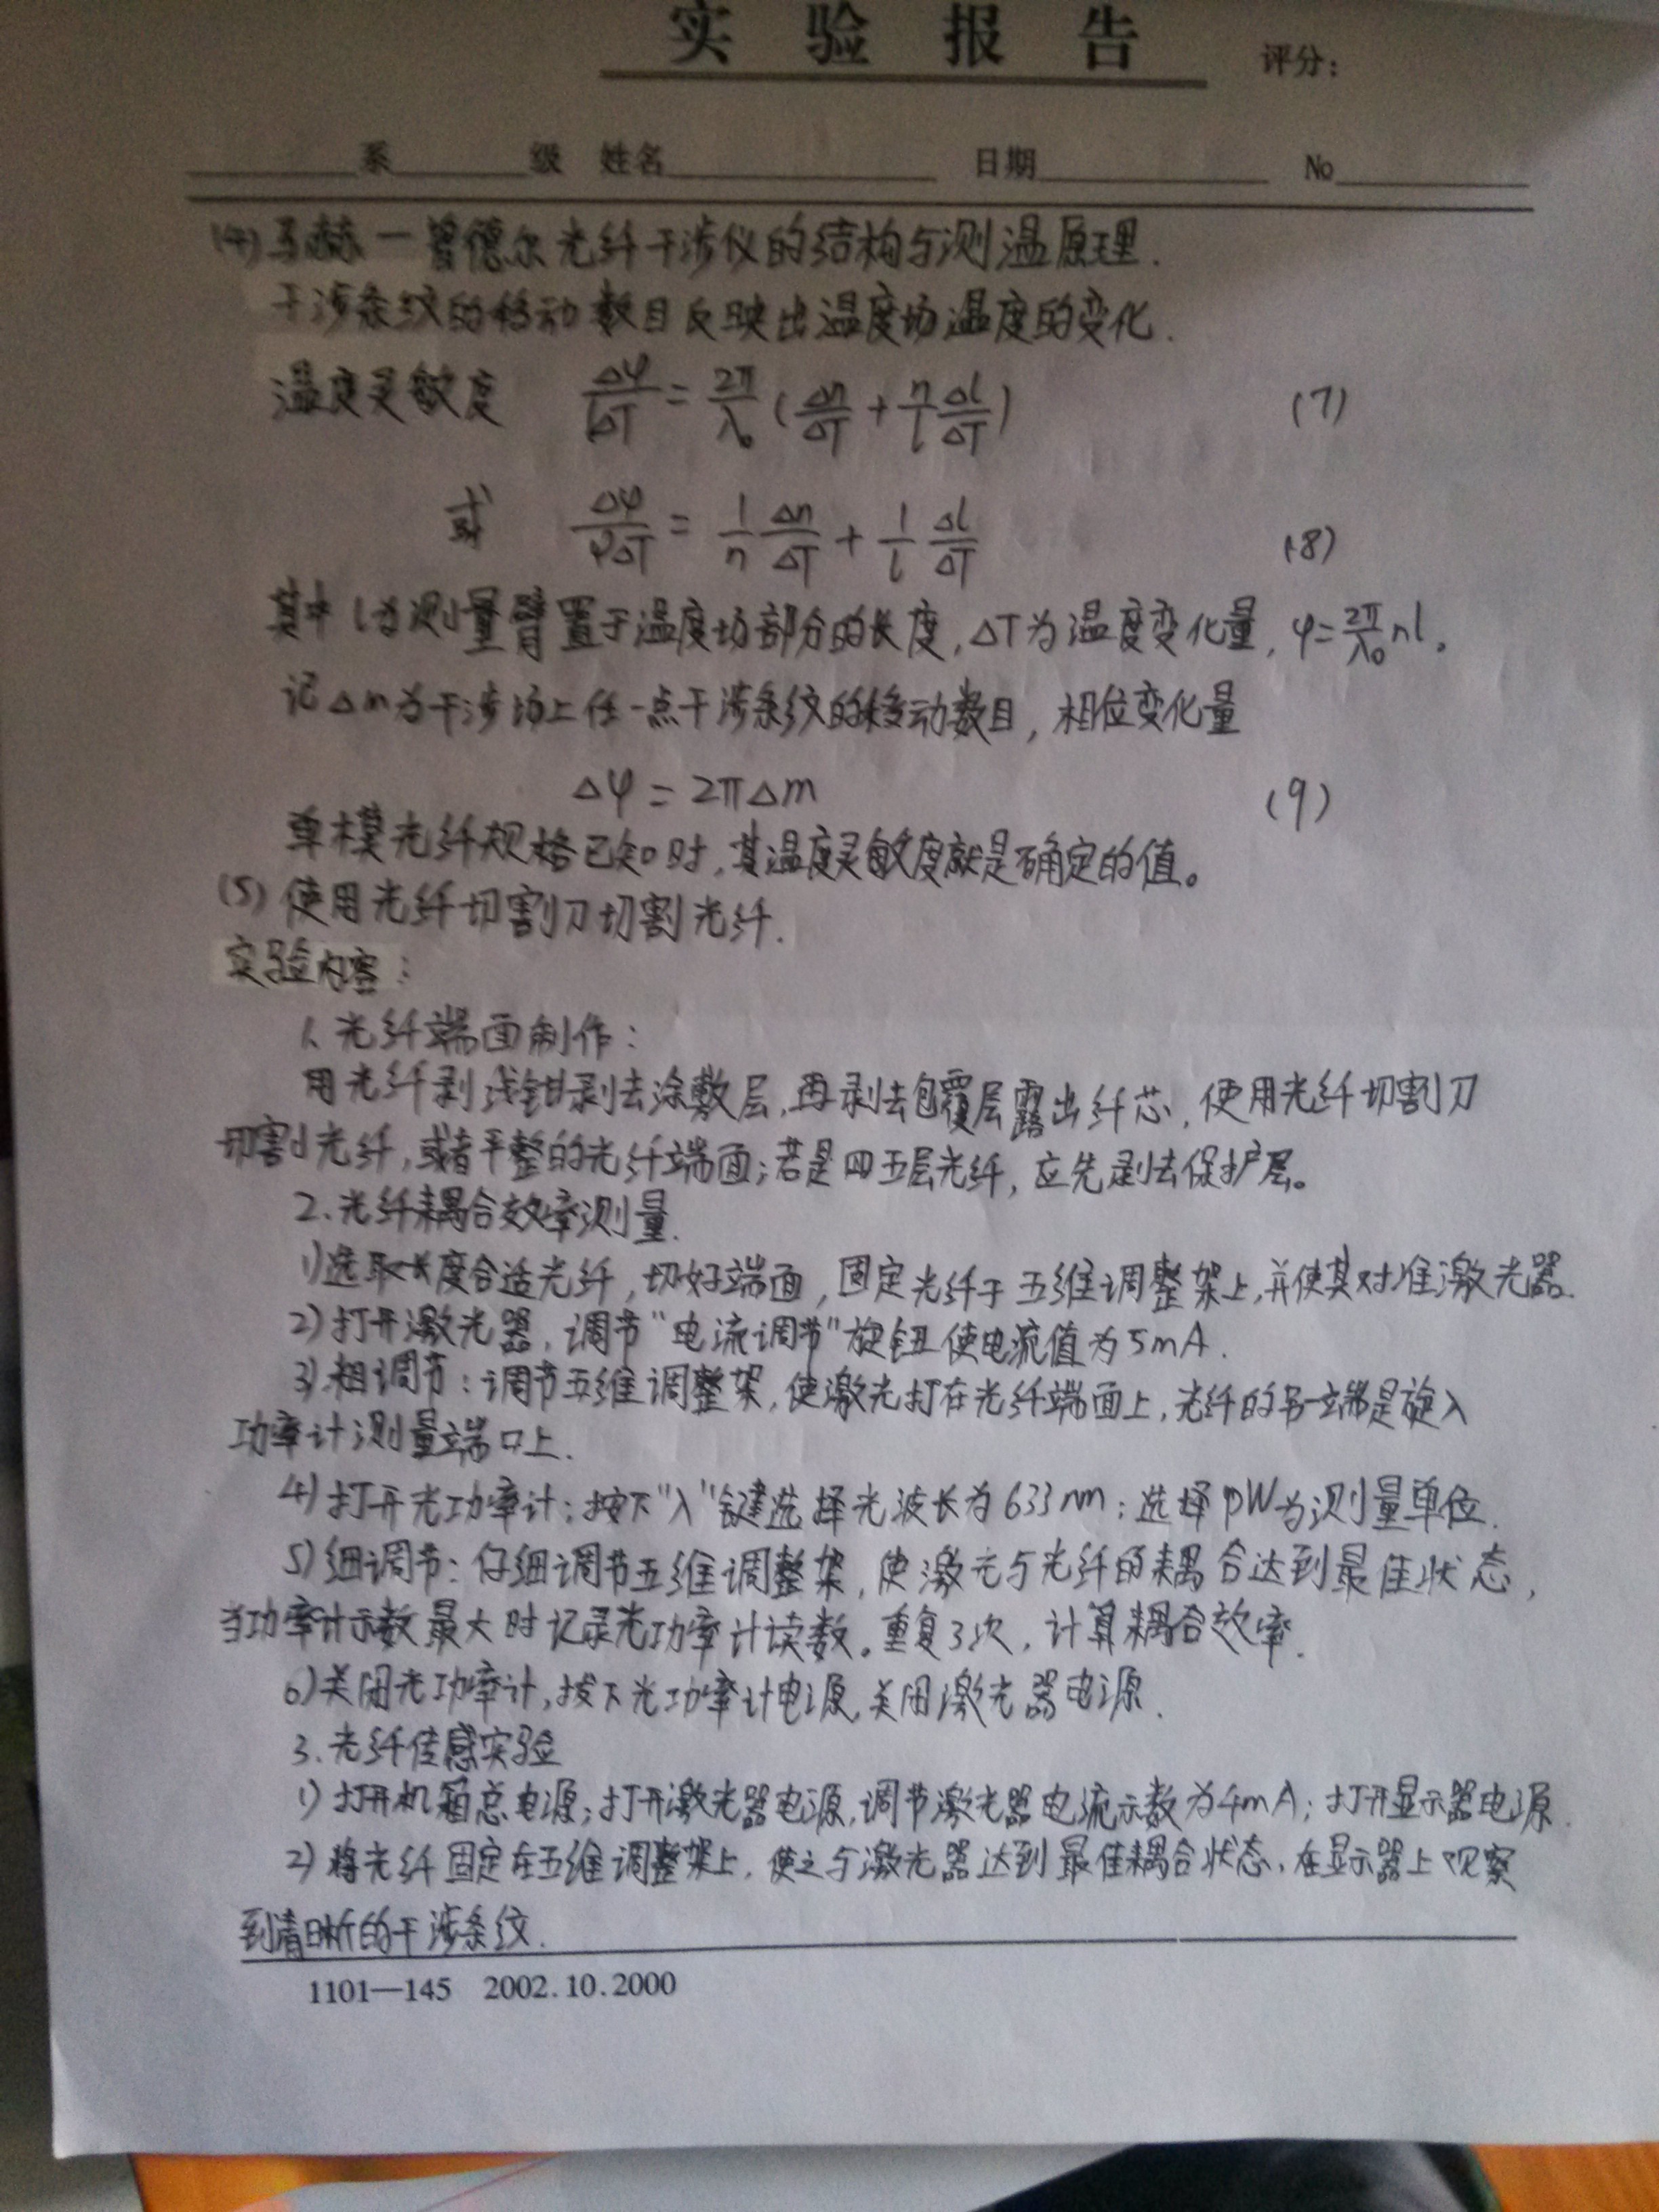 实验报告
评分：
系 级 姓名 日期 No
(4) 马赫一曾德尔光纤干涉仪的结构与测温原理.
干涉条纹的移动数目反映出温度场温度的变化.
温度灵敏度 Δφ/lΔT = 2π/λ₀ (Δn/ΔT + n/l Δl/ΔT) (7)
或 Δφ/φΔT = 1/n Δn/ΔT + 1/l Δl/ΔT (8)
其中l为测量臂置于温度场部分的长度,ΔT为温度变化量, φ=2π/λ₀ nl。
记Δm为干涉场上任一点干涉条纹的移动数目, 相位变化量
Δφ = 2πΔm (9)
单模光纤规格已知时,其温度灵敏度就是确定的值。
(5) 使用光纤切割刀切割光纤.
实验内容：
1、光纤端面制作：
用光纤剥线钳剥去涂敷层,再剥去包覆层露出纤芯, 使用光纤切割刀
切割光纤,或者平整的光纤端面;若是四五层光纤, 应先剥去保护层。
2.光纤耦合效率测量.
1)选取长度合适光纤,切好端面,固定光纤于五维调整架上,并使其对准激光器.
2)打开激光器,调节"电流调节"旋钮使电流值为5mA.
3).粗调节：调节五维调整架,使激光打在光纤端面上,光纤的另一端是旋入
功率计测量端口上.
4)打开光功率计;按下"λ"键选择光波长为633nm;选择μW为测量单位.
5)细调节：仔细调节五维调整架,使激光与光纤的耦合达到最佳状态,
当功率计示数最大时记录光功率计读数。重复3次,计算耦合效率.
6)关闭光功率计,拔下光功率计电源,关闭激光器电源.
3.光纤传感实验
1)打开机箱总电源;打开激光器电源,调节激光器电流示数为4mA;打开显示器电源.
2)将光纤固定在五维调整架上,使之与激光器达到最佳耦合状态,在显示器上观察
到清晰的干涉条纹.
1101—145 2002.10.2000